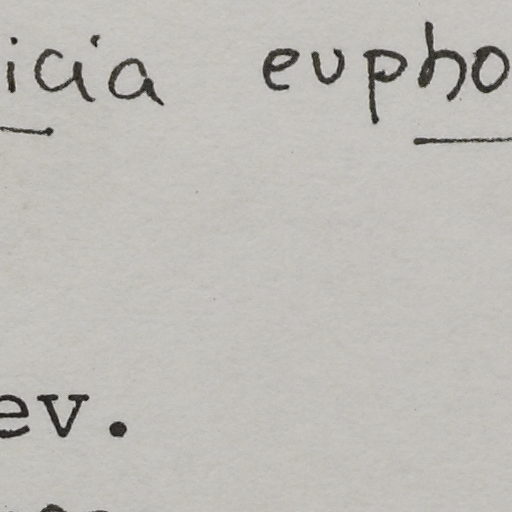 icia eupho
ev.